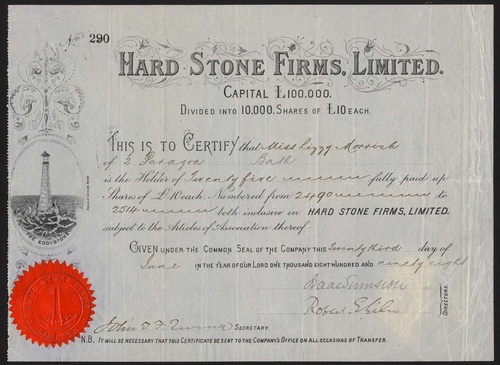 No 290
HARD STONE FIRMS, LIMITED.
CAPITAL £100,000.
DIVIDED INTO 10,000 SHARES OF £10 EACH.
THIS IS TO CERTIFY that Miss Lizzy Morrish
of 2 Paragon Bath
is the Holder of Twenty five fully paid up
Shares of £10 each, Numbered from 2490 to
2514 both inclusive in HARD STONE FIRMS, LIMITED.
subject to the Articles of Association thereof
THE EDDYSTONE
GIVEN UNDER THE COMMON SEAL OF THE COMPANY THIS Twenty third day of
June IN THE YEAR OF OUR LORD ONE THOUSAND EIGHT HUNDRED AND ninety eight
DIRECTORS.
John T. Turner SECRETARY.
N.B. IT WILL BE NECESSARY THAT THIS CERTIFICATE BE SENT TO THE COMPANY'S OFFICE ON ALL OCCASIONS OF TRANSFER.